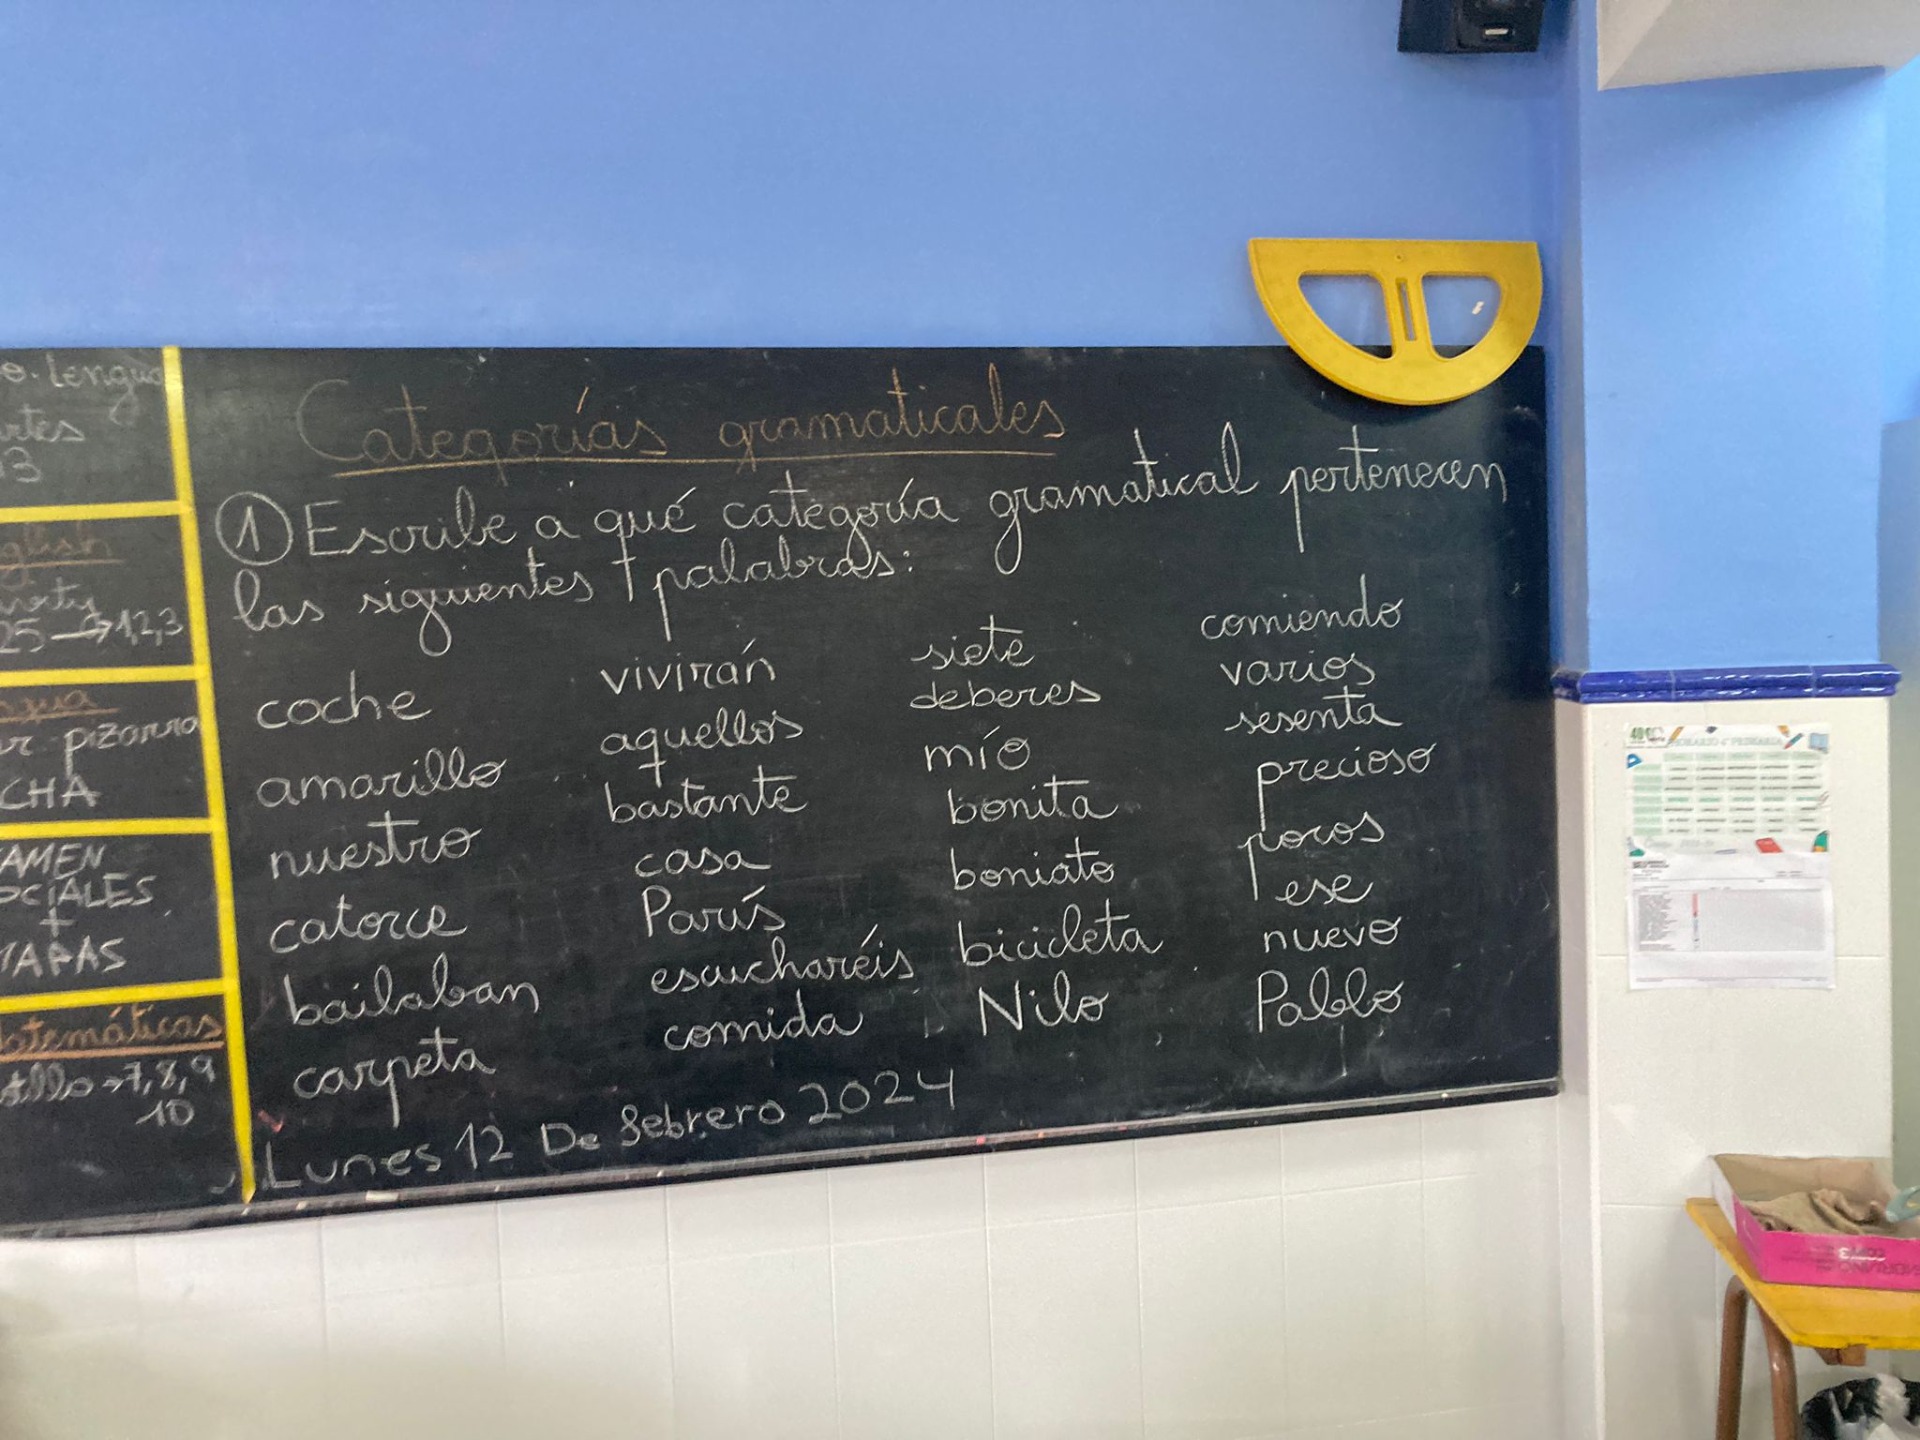 Lengua
13
25 → 1,2,3
pizarra
SOCIALES
+
MAPAS
Matemáticas
→ 7, 8, 9
10
Categorías gramaticales
① Escribe a qué categoría gramatical pertenecen
las siguientes palabras:
coche
amarillo
nuestro
catorce
bailaban
carpeta
vivirán
aquellos
bastante
casa
París
escucharéis
comida
siete
deberes
mío
bonita
boniato
bicicleta
Nilo
comiendo
varios
sesenta
precioso
pocos
ese
nuevo
Pablo
Lunes 12 De febrero 2024
HORARIO 4º PRIMARIA